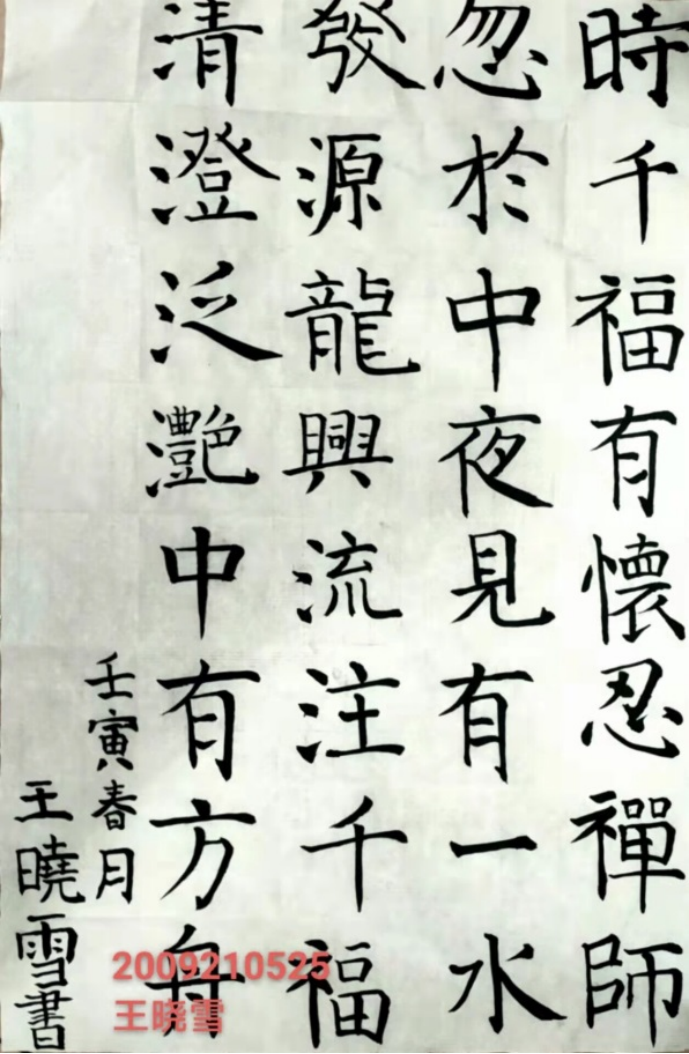 時千福有懷忍禪師
忽於中夜見有一水
發源龍興流注千福
清澄泛灩中有方舟
壬寅春月
王曉雪書
2009210525
王晓雪